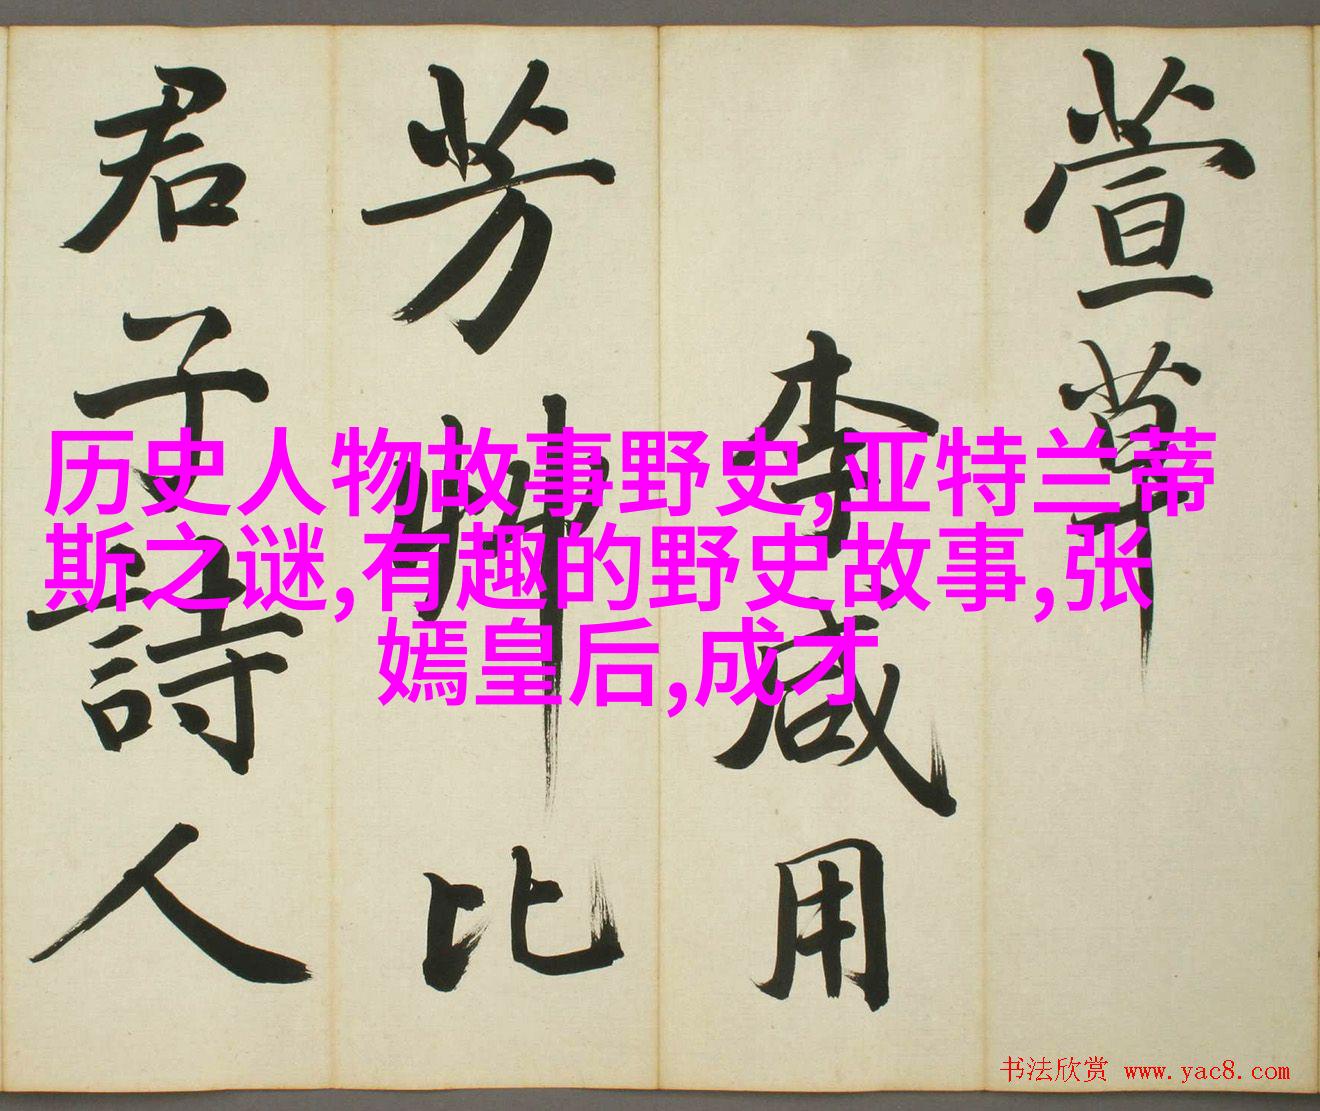 萱草
李咸用
芳艸比
君子詩人
历史人物故事野史,亚特兰蒂
斯之谜,有趣的野史故事,张
嫣皇后,成才
书法欣赏 www.yac8.com